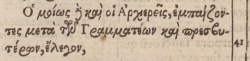 Ὁμοίως ἢ καὶ οἱ Ἀρχερεῖς, ἐμπαίζον-
τες μετὰ τῶν Γραμματέων καὶ πρεσβυ-
τέρων, ἔλεγον, 41